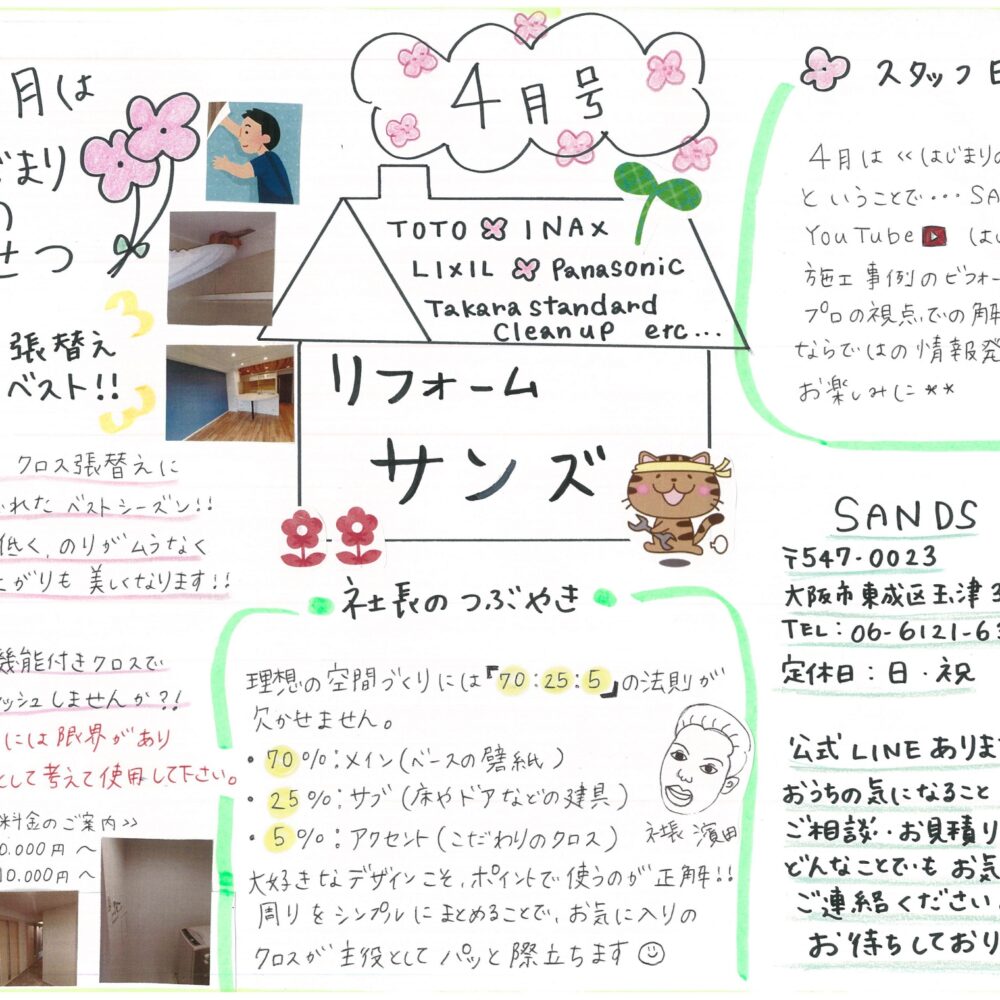 月は
まり
の
せつ
張替え
ベスト!!
クロス張替えに
れた ベストシーズン!!
低く、のりがムラなく
上がりも 美しくなります!!
機能付きクロスで
ッシュしませんか?!
には限界があり
として考えて使用して下さい。
料金のご案内>>
0.000円～
10.000円～
4月号
TOTO INAX
LIXIL Panasonic
Takara standard
Cleanup etc...
リフォーム
サンズ
社長のつぶやき
理想の空間づくりには『70:25:5』の法則が
欠かせません。
・70%:メイン(ベースの壁紙)
・25%:サブ(床やドアなどの建具)
・5%:アクセント(こだわりのクロス)
社長 濱田
大好きなデザインこそ、ポイントで使うのが正解!!
周りをシンプルにまとめることで、お気に入りの
クロスが主役としてパッと際立ちます
スタッフ日
4月は<<はじまりの
ということで・・・SA
YouTube はじ
施工事例のビフォー
プロの視点での解
ならではの情報発
お楽しみに**
SANDS
〒547-0023
大阪市東成区玉津3
TEL:06-6121-63
定休日:日・祝
公式LINEありま
おうちの気になること
ご相談・お見積り
どんなことでもお気
ご連絡ください。
お待ちしており